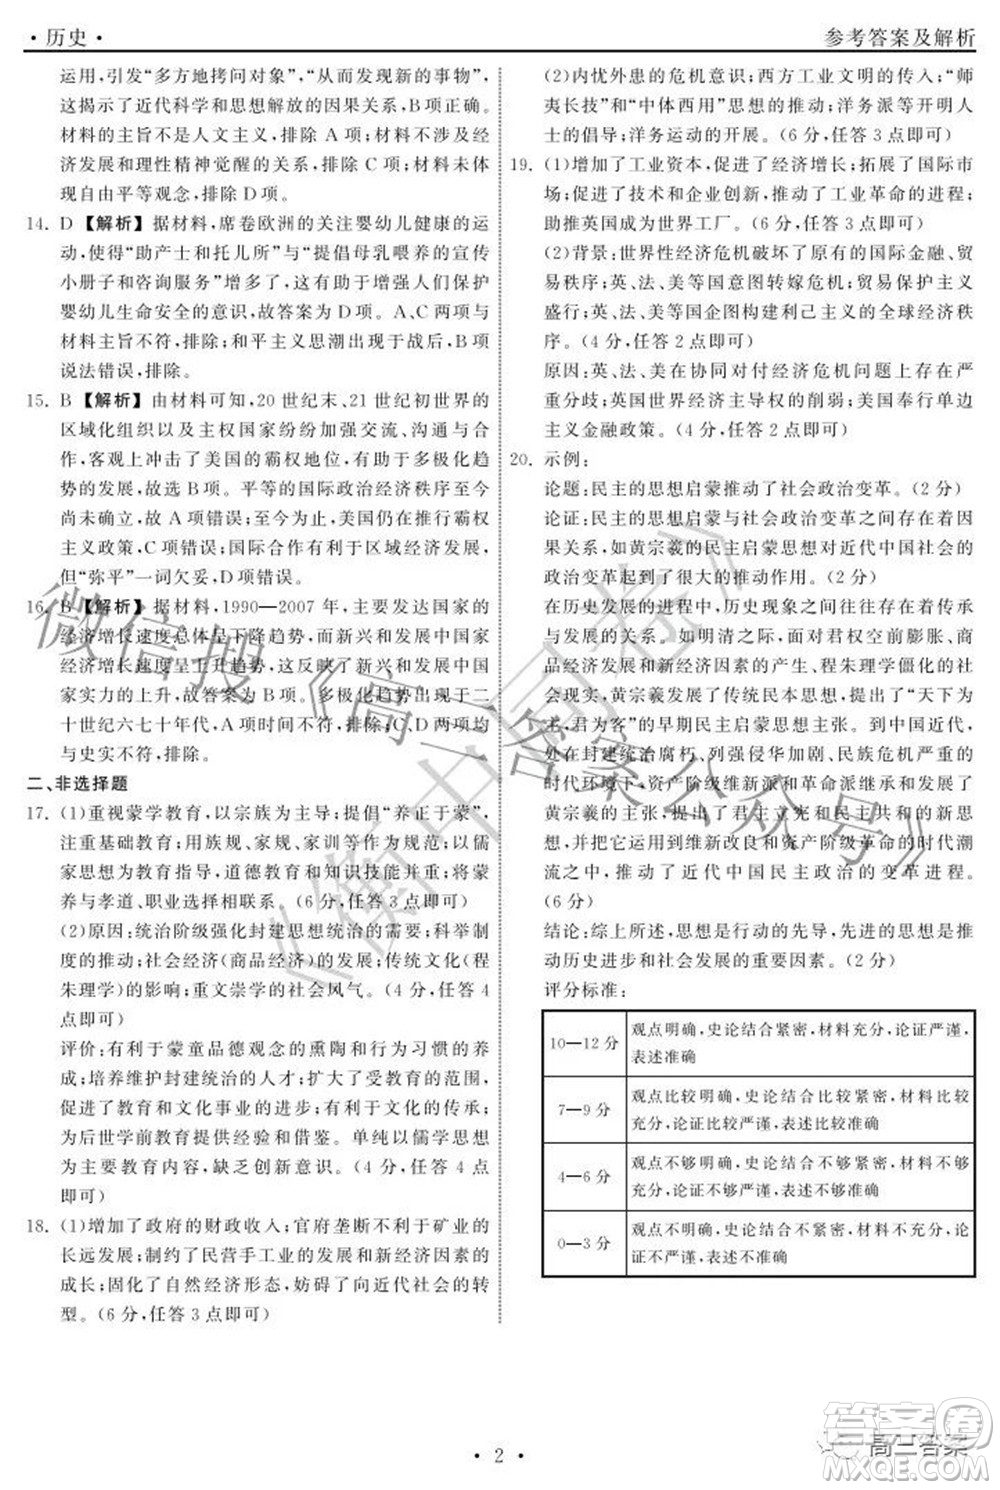 · 历史 ·
参考答案及解析
运用,引发“多方地拷问对象”,“从而发现新的事物”,
这蕴含了近代科学和思想解放的因果关系,B项正确。
材料的主旨不是人文主义,排除 A 项;材料不涉及经
济发展和理性精神觉醒的关系,排除 C 项;材料未体
现自由平等观念,排除 D 项。
14. D 【解析】据材料,席卷欧洲的关注婴幼儿健康的运
动,使得“助产士和托儿所”与“提倡母乳喂养的宣传
小册子和咨询服务”增多了,有助于增强人们保护
婴幼儿生命安全的意识,故答案为 D 项。A、C 两项与
材料主旨不符,排除;和平主义思潮出现于此时的
说法错误,排除。
15. B 【解析】由材料可知,20 世纪末、21 世纪初世界的
区域化组织以及主权国家纷纷加强交流、沟通与合
作,客观上冲击了美国的霸权地位,有助于多极化趋
势的发展,故选 B 项。平等的国际政治经济秩序至今
尚未确立,故 A 项错误;至今为止,美国仍在推行霸权
主义政策,C 项错误;国际合作有利于区域经济发展,
但“弥平”一词欠妥,D 项错误。
16. B 【解析】据材料,1990—2007 年,主要发达国家的
经济增长速度总体呈下降趋势,而新兴大国的整体经
济增长速度呈上升趋势,这有助于推动新兴市场国
家实力的上升,故答案为 B 项。多极化趋势出现于二
十世纪六七十年代,A 项时间不符,排除;C、D 两项均
与史实不符,排除。
二、非选择题
17. (1)重视蒙学教育,以宗族为主导;提倡“养正于蒙”,
注重基础教育;用族规、家规、家训等作为规范;以儒
家思想为教育指导,谨遵封建伦理道德;将蒙
养与孝道、职业选择相联系。(6 分,任答 3 点即可)
(2)原因:统治阶级强化封建思想统治的需要;科举制
度的推动;社会经济(商品经济)的发展;传统文化(程
朱理学)的影响;重文崇学的社会风气。(4 分,任答 4
点即可)
评价:有利于蒙童品德观念的熏陶和行为习惯的养
成;培养维护封建统治的人才;扩大了受教育的范围,
促进了教育和文化事业的进步;有利于文化的传承;
为后世学前教育提供经验和借鉴。单纯以儒学思想
为主要教育内容,缺乏创新意识。(4 分,任答 4 点
即可)
18. (1)增加了政府的财政收入;官府垄断不利于矿业的
长远发展;制约了民营手工业的发展和新经济因素的
成长;固化了自然经济形态,妨碍了向近代社会的转
型。(6 分,任答 3 点即可)
(2)内忧外患的危机意识;西方工业文明的传入;“师
夷长技”和“中体西用”思想的推动;洋务派等开明人
士的倡导;洋务运动的开展。(6 分,任答 3 点即可)
19. (1)增加了工业资本,促进了经济增长;拓展了国际市
场;促进了技术和企业创新,推动了工业革命的进程;
助推英国成为世界工厂。(4 分,任答 2 点即可)
(2)背景:世界性经济危机破坏了原有的国际金融、贸
易体系;英、法、美等国意图转嫁危机;贸易保护主义
盛行;英、法、美等国企图构建利己主义的全球经济秩
序。(4 分,任答 2 点即可)
原因:英、法、美在协同对付经济危机问题上存在严
重分歧;英国世界经济主导权的削弱;美国奉行单边
主义金融政策。(4 分,任答 2 点即可)
20. 示例:
论题:民主的思想启蒙推动了社会政治变革。(2 分)
论证:民主的思想启蒙与社会政治变革之间存在因果
关系,如黄宗羲的民主启蒙思想对近代中国社会的
政治变革起到了很大的推动作用。(2 分)
在历史发展的进程中,历史现象之间往往存在着传承
与发展的关系。如明清之际,面对君权空前膨胀、商
品经济发展和新经济因素的产生、程朱理学僵化的社
会现实,黄宗羲发展了传统民本思想,提出了“天下为
主,君为客”的早期民主启蒙思想主张。到中国近代,
处在封建统治腐朽、列强侵华加剧、民族危机严重的
时代环境下,资产阶级维新派和革命派继承并发展了
黄宗羲的主张,提出了君主立宪和民主共和的新思
想,并掀起了维新改良和资产阶级革命的时代潮流,
从而推动了近代中国民主政治的变革和发展进程。
(6 分)
结论:综上所述,思想是行动的先导,先进的思想是推
动历史进步和社会发展的重要因素。(2 分)
评分标准:
10—12 分 观点明确,史论结合紧密,材料充分,论证严谨,
表述准确
7—9 分 观点比较明确,史论结合比较紧密,材料比较
充分,论证比较严谨,表述比较准确
4—6 分 观点不够明确,史论结合不够紧密,材料不够
充分,论证不够严谨,表述不够准确
0—3 分 观点不明确,史论结合不紧密,材料不充分,论
证不严谨,表述不准确
· 2 ·
微信搜《高三答案公众号》
《衡中同卷》
高三答案
答案圈
MXQE.COM